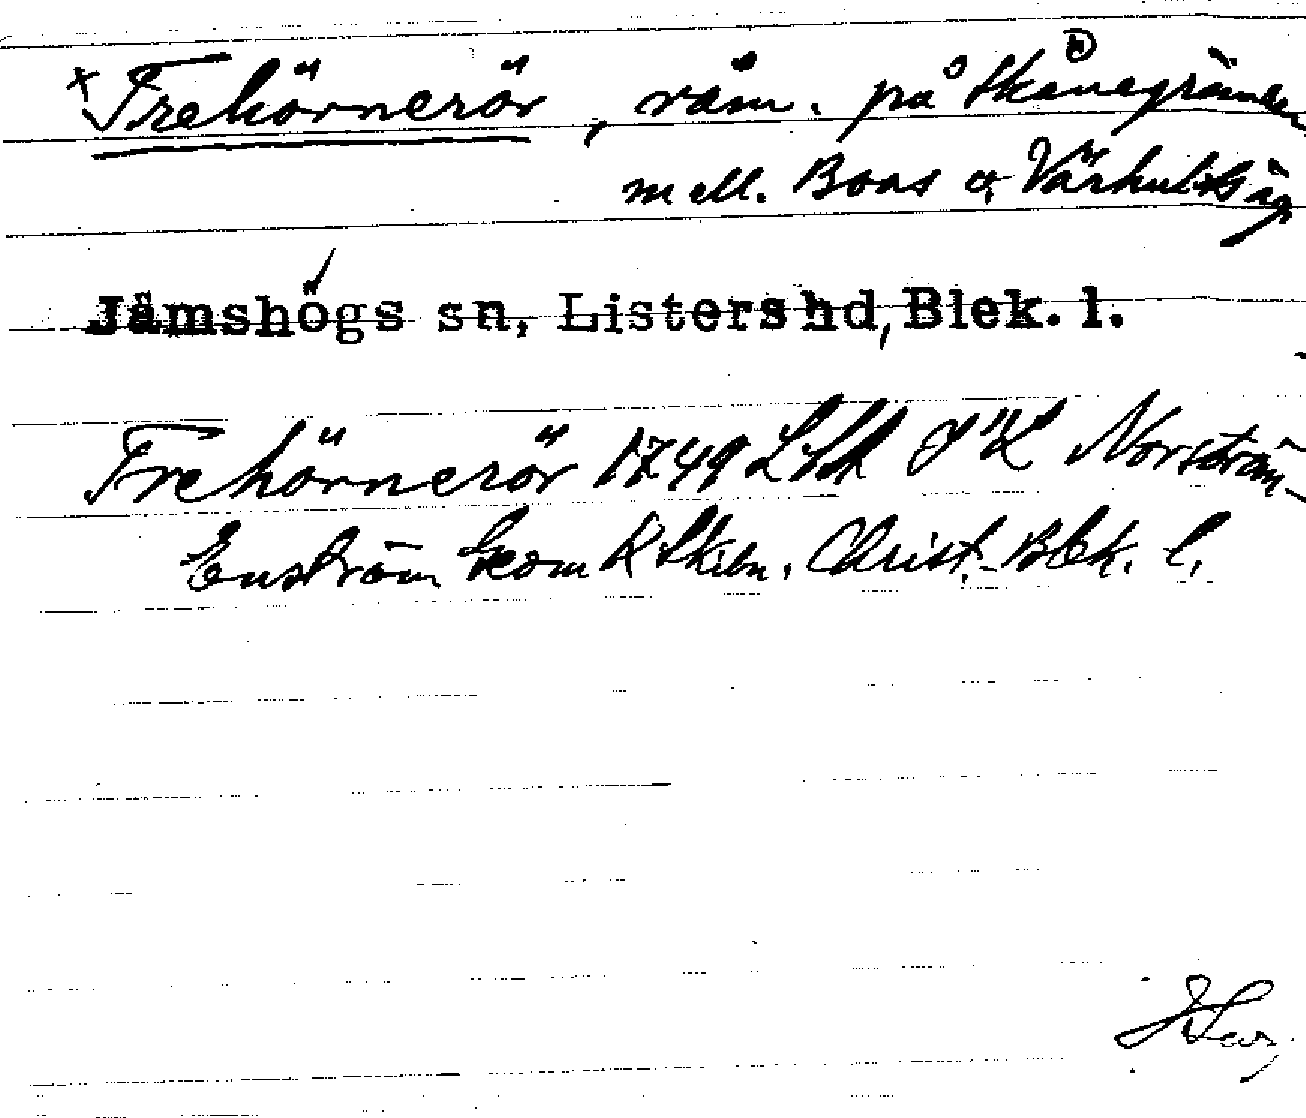 x Trehörnerör, råm. på Skånegränsen
mell. Boas o. Värhults äg
Jämshögs sn, Listers hd, Blek. l.
Trehörnerör 1749 Lbh J K Norström-
Enström Geom R Skiln. Christ.-Blek. l.